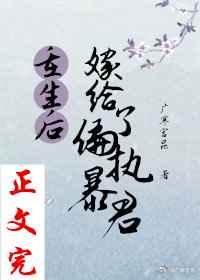 重生后
嫁给了偏执暴君
广寒宫昆 著
正文完